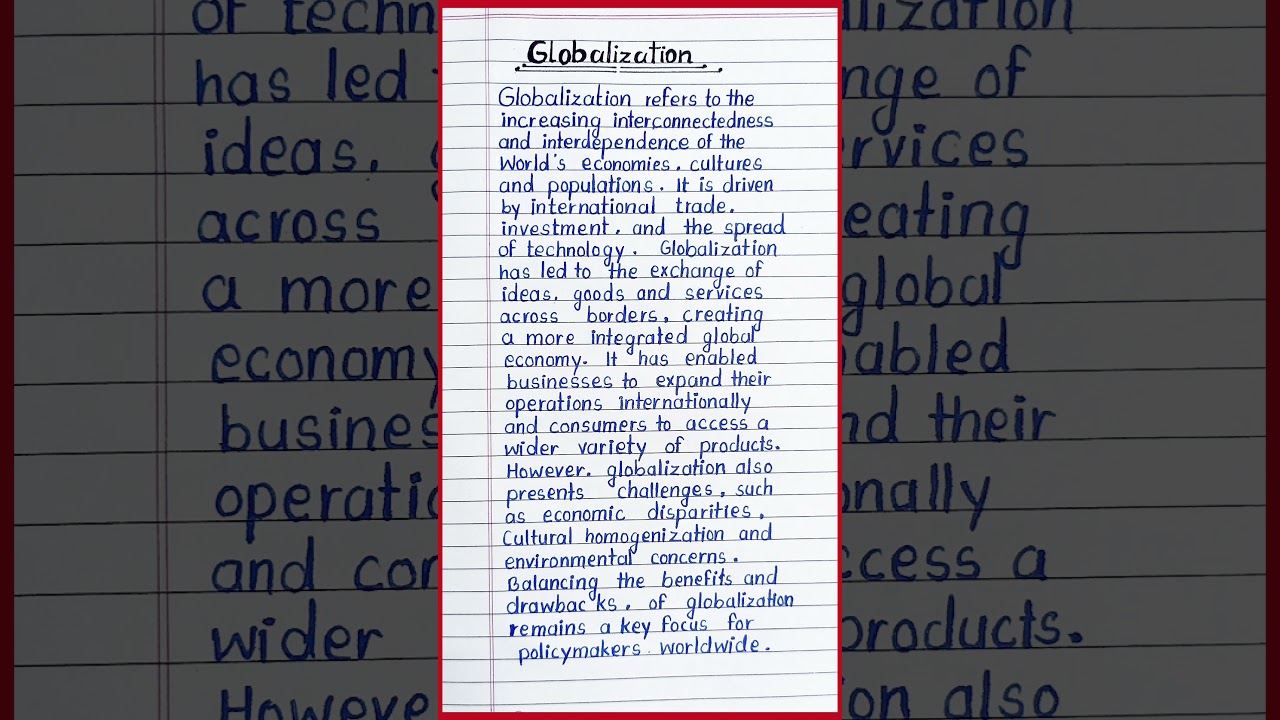 Globalization
Globalization refers to the
increasing interconnectedness
and interdependence of the
World's economies, cultures
and populations. It is driven
by international trade.
investment, and the spread
of technology. Globalization
has led to the exchange of
ideas, goods and services
across borders, creating
a more integrated global
economy. It has enabled
businesses to expand their
operations internationally
and consumers to access a
wider variety of products.
However, globalization also
presents challenges, such
as economic disparities,
Cultural homogenization and
environmental concerns.
Balancing the benefits and
drawbacks, of globalization
remains a key focus for
policymakers worldwide.